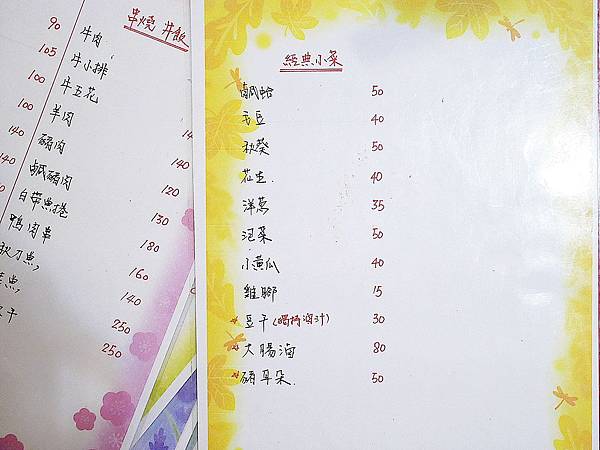 串燒 丼飯
90 牛肉
105 牛小排
100 牛五花
100 羊肉
140 豬肉
140 鹹豬肉
白帶魚捲
鴨肉串
秋刀魚
140
120
130
180
160
140
250
250
經典小菜
鹹蛤 50
毛豆 40
秋葵 50
花生 40
洋蔥 35
泡菜 50
小黃瓜 40
雞腳 15
豆干(獨門滷汁) 30
大腸滷 80
豬耳朵 50